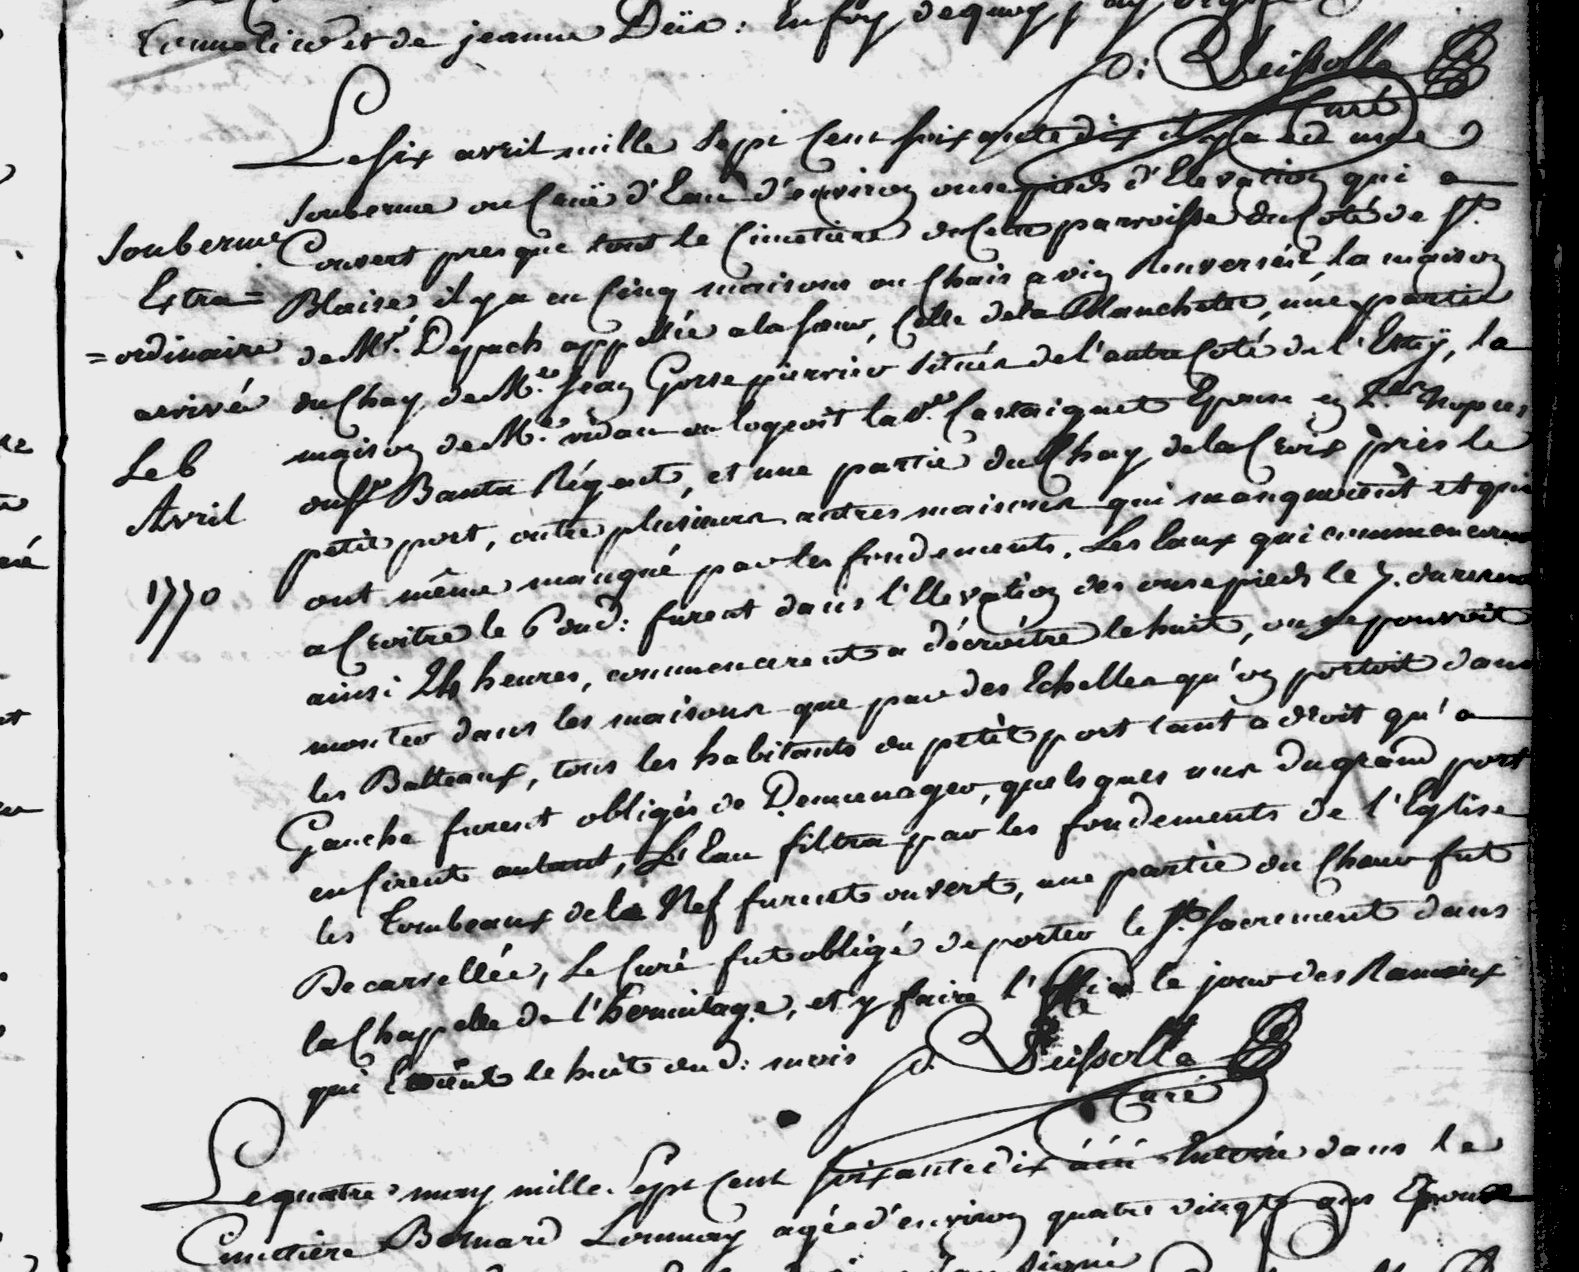 et de jeanne : En foy de quoy j'ay signé
Di: Beissolle
Curé
Le six avril mille sept cent soixante dix il y a eu une
Souberme ou Creüe d'Eau d'environ onse pieds d'Elevation qui a
Couvert presque tout le Cimetiere de cette parroisse du Coté de St.
Blaise, il y a eu Cinq maisons ou Chais a vin Renversés, la maison
de Mr. Depuch appellée a la soeur, Celle de la Planchette, une partie
du Chay de Mr. Jean Gorse située de l'autre Coté de l'Estey, la
maison de Mr. ou logeoit la Dlle. Castaignet Epouse en 2des nopces
du Sr Régent, et une partie du Chay de la Croix près le
petit port, outre plusieurs autres maisons qui manquoient et qui
ont même manqué par les fondements. Les Eaux qui commencerent
a Croitre le 6 dud: furent dans l'Elevation des onse pieds le 7. durerent
ainsi 24 heures, commencerent a décroitre le huit, on ne pouvoit
monter dans les maisons que par des Echelles qu'on portoit dans
les Batteaux, tous les habitants du petit port tant a droit qu'a
Gauche furent obligés de Demenager, quelsques uns du grand port
en firent autant, L'Eau filtra par les fondements de l'Eglise
les Tombeaux de la Nef furent ouvert, une partie du Choeur fut
Decarrellée, Le Curé fut obligé de porter le St. Sacrement dans
la Chapelle de l'hermitage, et y faire l'office le jour des Rameaux
qui Etoient le huit dud: mois D. Beissolle
Curé
Souberme
Extra=
=ordinaire
arrivée
Le 6
Avril
1770
Le quatre may mille Sept Cent soixante dix a été Enterré dans le
Cimetiere Bernard agée d'environ quatre vingts ans Epouse
signé